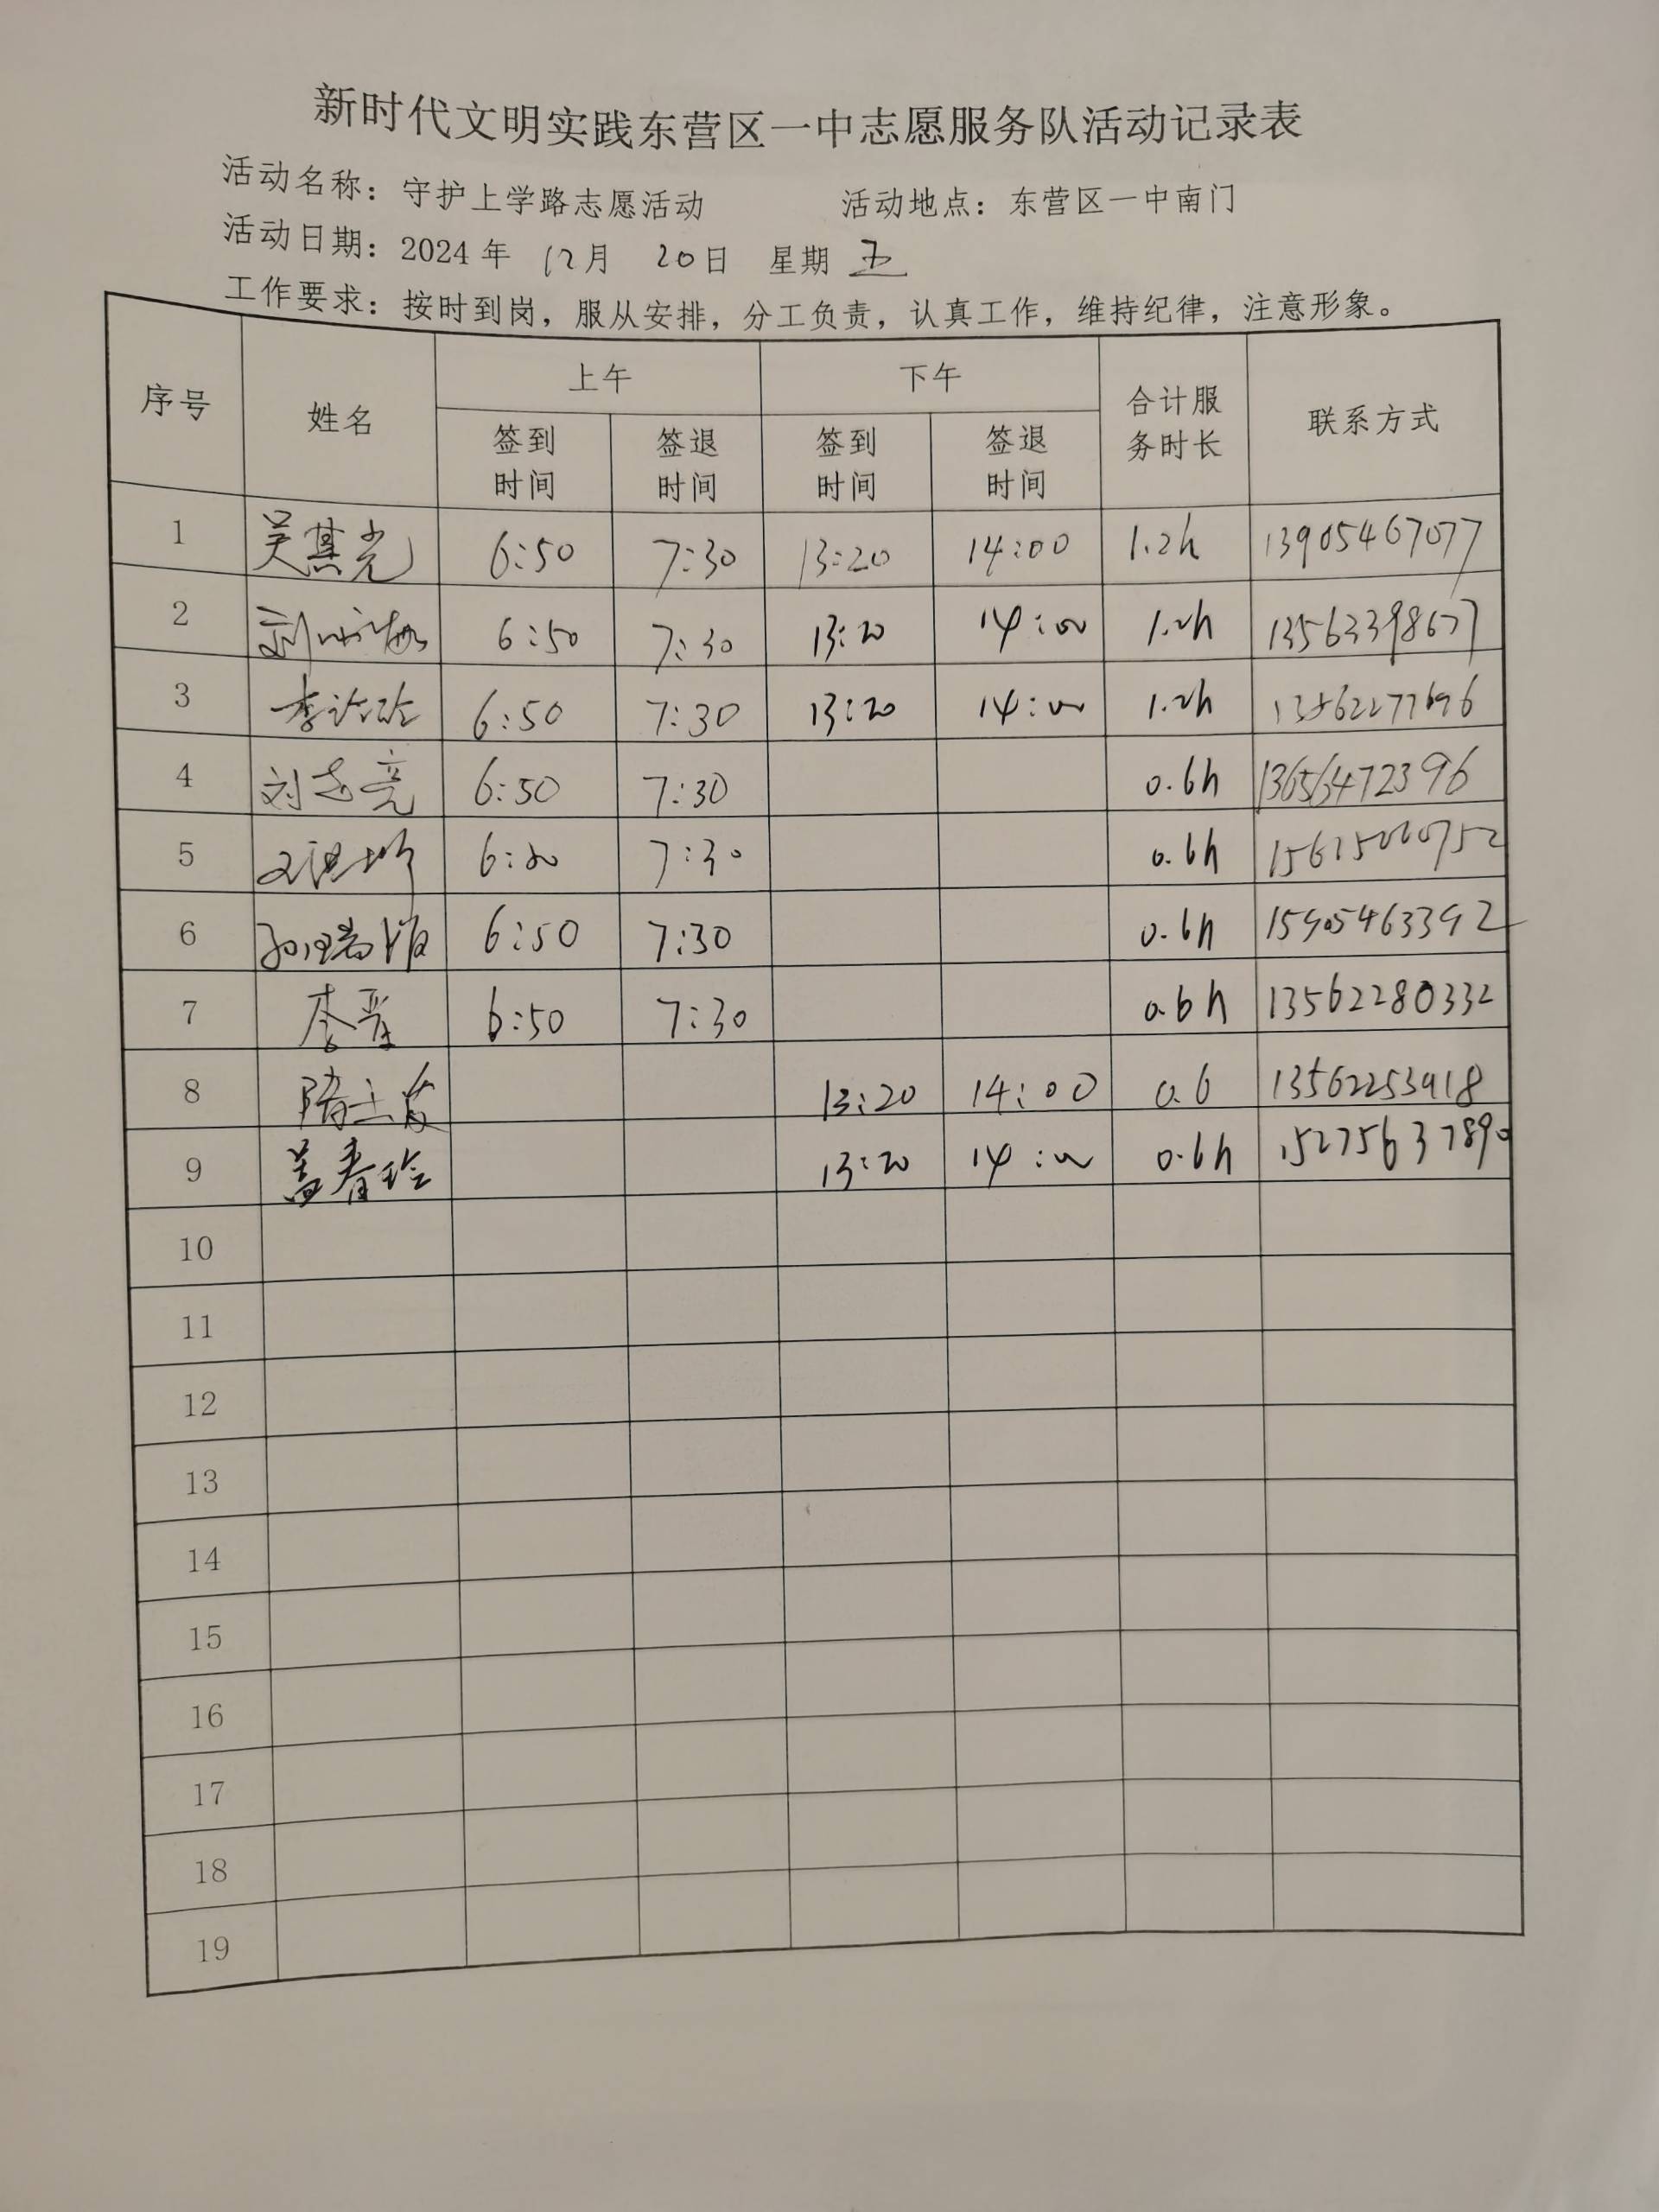 新时代文明实践东营区一中志愿服务队活动记录表
活动名称：守护上学路志愿活动 活动地点：东营区一中南门
活动日期：2024年 12月 20日 星期 五
工作要求：按时到岗，服从安排，分工负责，认真工作，维持纪律，注意形象。
序号 姓名 上午 下午 合计服务时长 联系方式
签到时间 签退时间 签到时间 签退时间
1 吴其光 6:50 7:30 13:20 14:00 1.2h 13905467077
2 6:50 7:30 13:20 14:00 1.2h 13563398677
3 6:50 7:30 13:20 14:00 1.2h 13562277696
4 刘志亮 6:50 7:30 0.6h 13656472396
5 7:30 0.6h
6 6:50 7:30 0.6h 15905463392
7 李晋 6:50 7:30 0.6h 13562280332
8 13:20 14:00 0.6 13562253918
9 盖春玲 13:20 14:00 0.6h 15275637890
10
11
12
13
14
15
16
17
18
19